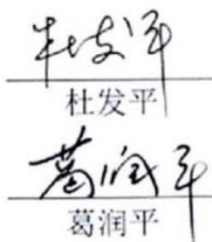 杜发平
杜发平
葛润平
葛润平